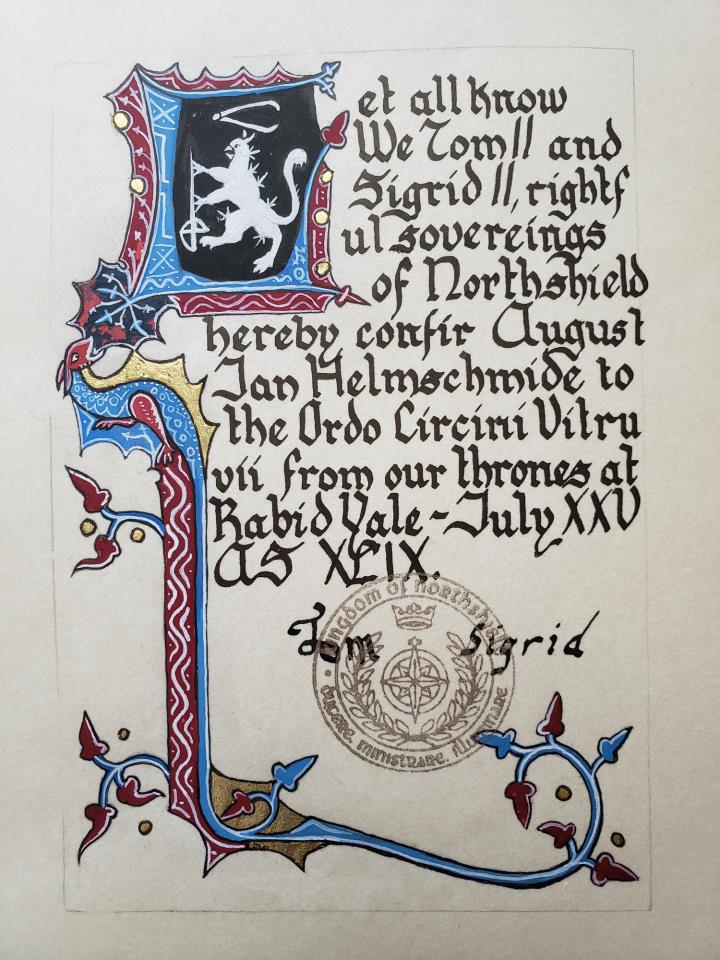 et all know
We Tom II and
Sigrid II, rightf
ul sovereings
of Northshield
hereby confir August
Jan Helmschmide to
the Ordo Circini Vitru
vii from our thrones at
Rabid Vale - July XXV
AS XLIX.
Tom Sigrid
Kingdom of Northshield
Ducere, Ministrare, Illuminare